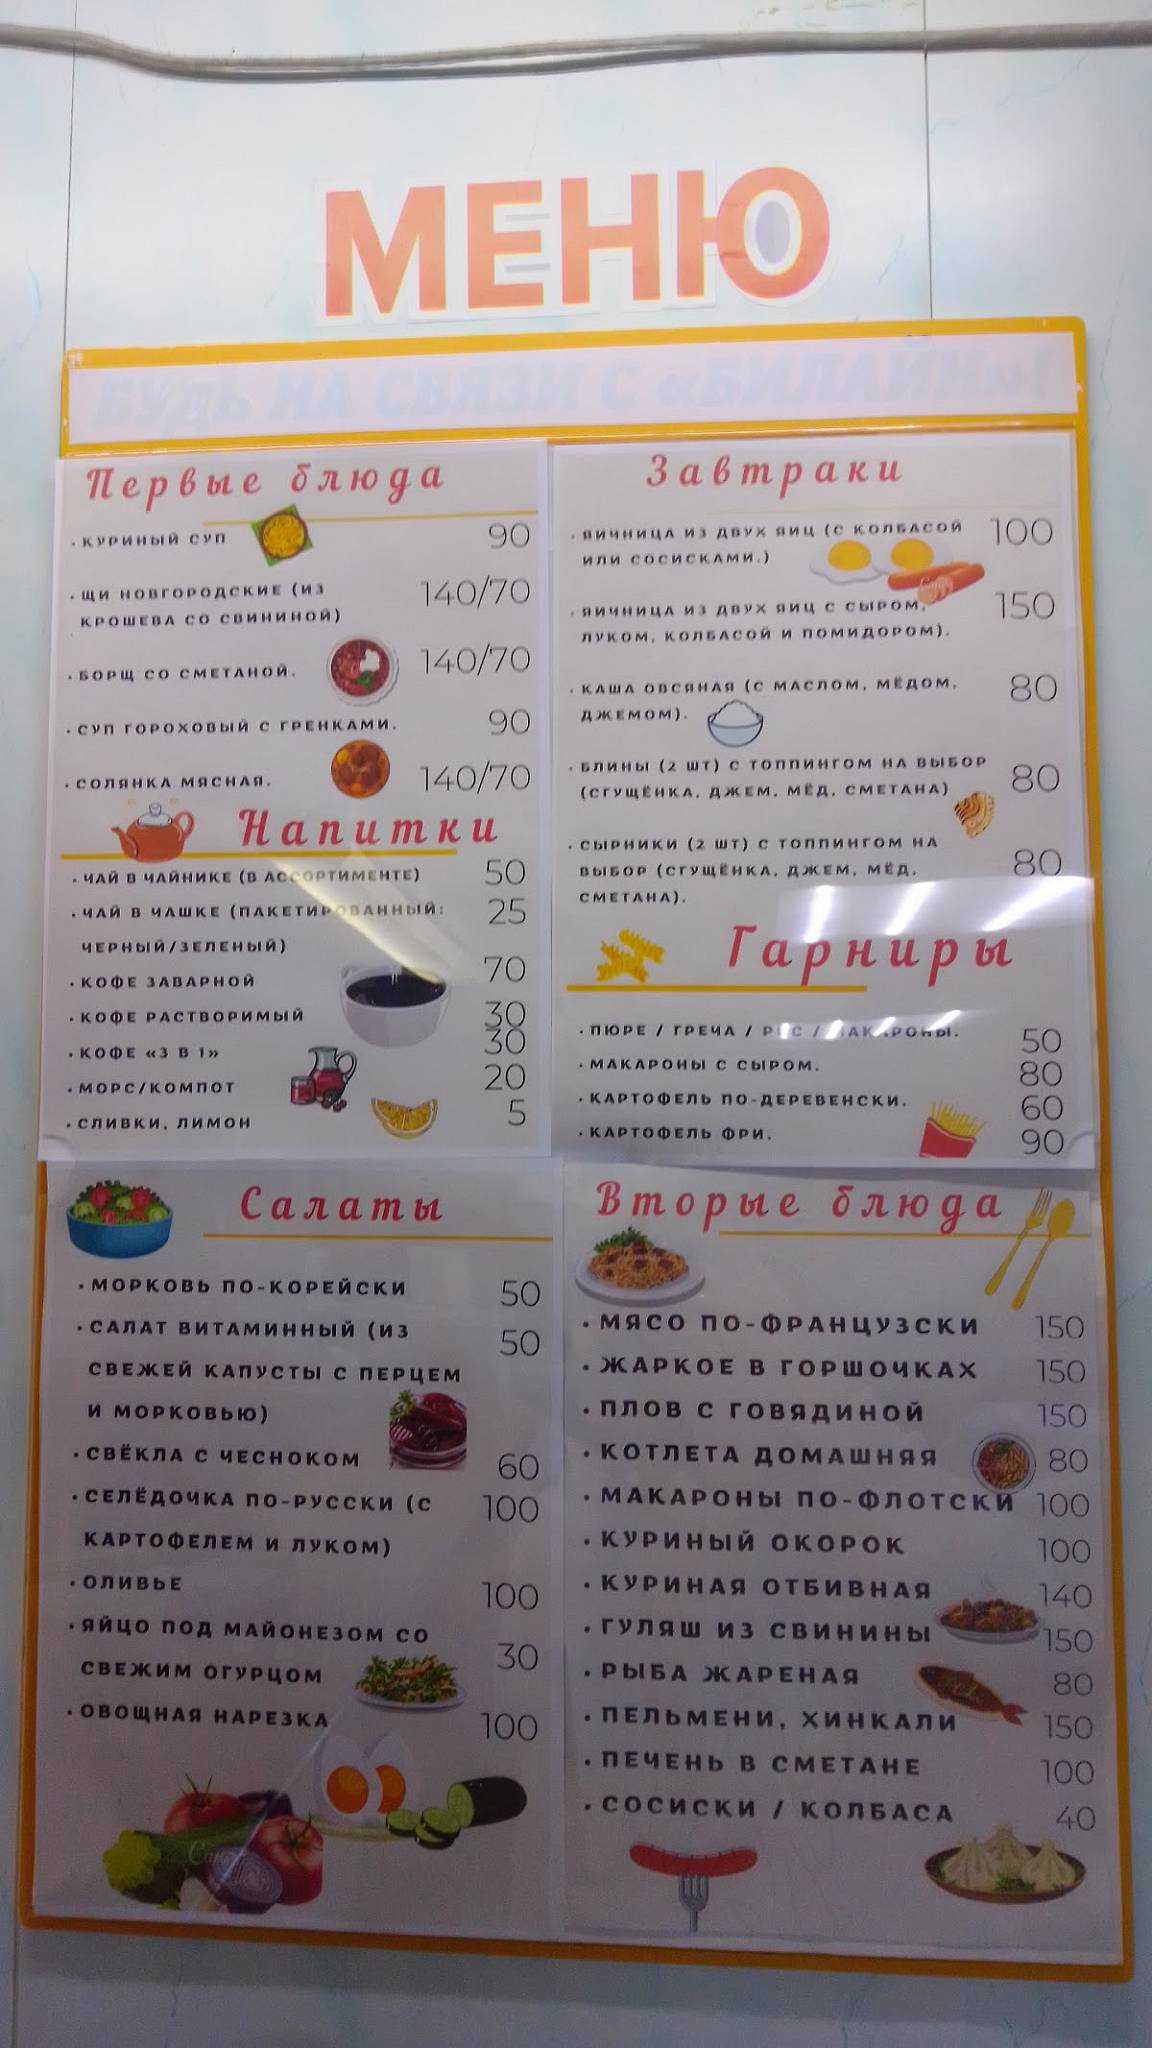 МЕНЮ
БУДЬ НА СВЯЗИ С «БИЛАЙН»!
Первые блюда
• КУРИНЫЙ СУП 90
• ЩИ НОВГОРОДСКИЕ (ИЗ 140/70
КРОШЕВА СО СВИНИНОЙ)
• БОРЩ СО СМЕТАНОЙ. 140/70
• СУП ГОРОХОВЫЙ С ГРЕНКАМИ. 90
• СОЛЯНКА МЯСНАЯ. 140/70
Напитки
• ЧАЙ В ЧАЙНИКЕ (В АССОРТИМЕНТЕ) 50
• ЧАЙ В ЧАШКЕ (ПАКЕТИРОВАННЫЙ: 25
ЧЕРНЫЙ/ЗЕЛЕНЫЙ)
• КОФЕ ЗАВАРНОЙ 70
• КОФЕ РАСТВОРИМЫЙ 30
• КОФЕ «3 В 1» 30
• МОРС/КОМПОТ 20
• СЛИВКИ, ЛИМОН 5
Завтраки
• ЯИЧНИЦА ИЗ ДВУХ ЯИЦ (С КОЛБАСОЙ 100
ИЛИ СОСИСКАМИ.)
• ЯИЧНИЦА ИЗ ДВУХ ЯИЦ С СЫРОМ, 150
ЛУКОМ, КОЛБАСОЙ И ПОМИДОРОМ).
• КАША ОВСЯНАЯ (С МАСЛОМ, МЁДОМ, 80
ДЖЕМОМ).
• БЛИНЫ (2 ШТ) С ТОППИНГОМ НА ВЫБОР 80
(СГУЩЁНКА, ДЖЕМ, МЁД, СМЕТАНА)
• СЫРНИКИ (2 ШТ) С ТОППИНГОМ НА
ВЫБОР (СГУЩЁНКА, ДЖЕМ, МЁД, 80
СМЕТАНА).
Гарниры
• ПЮРЕ / ГРЕЧА / РИС / МАКАРОНЫ. 50
• МАКАРОНЫ С СЫРОМ. 80
• КАРТОФЕЛЬ ПО-ДЕРЕВЕНСКИ. 60
• КАРТОФЕЛЬ ФРИ. 90
Салаты
• МОРКОВЬ ПО-КОРЕЙСКИ 50
• САЛАТ ВИТАМИННЫЙ (ИЗ 50
СВЕЖЕЙ КАПУСТЫ С ПЕРЦЕМ
И МОРКОВЬЮ)
• СВЁКЛА С ЧЕСНОКОМ 60
• СЕЛЁДОЧКА ПО-РУССКИ (С 100
КАРТОФЕЛЕМ И ЛУКОМ)
• ОЛИВЬЕ 100
• ЯЙЦО ПОД МАЙОНЕЗОМ СО 30
СВЕЖИМ ОГУРЦОМ
• ОВОЩНАЯ НАРЕЗКА 100
Вторые блюда
• МЯСО ПО-ФРАНЦУЗСКИ 150
• ЖАРКОЕ В ГОРШОЧКАХ 150
• ПЛОВ С ГОВЯДИНОЙ 150
• КОТЛЕТА ДОМАШНЯЯ 80
• МАКАРОНЫ ПО-ФЛОТСКИ 100
• КУРИНЫЙ ОКОРОК 100
• КУРИНАЯ ОТБИВНАЯ 140
• ГУЛЯШ ИЗ СВИНИНЫ 150
• РЫБА ЖАРЕНАЯ 80
• ПЕЛЬМЕНИ, ХИНКАЛИ 150
• ПЕЧЕНЬ В СМЕТАНЕ 100
• СОСИСКИ / КОЛБАСА 40